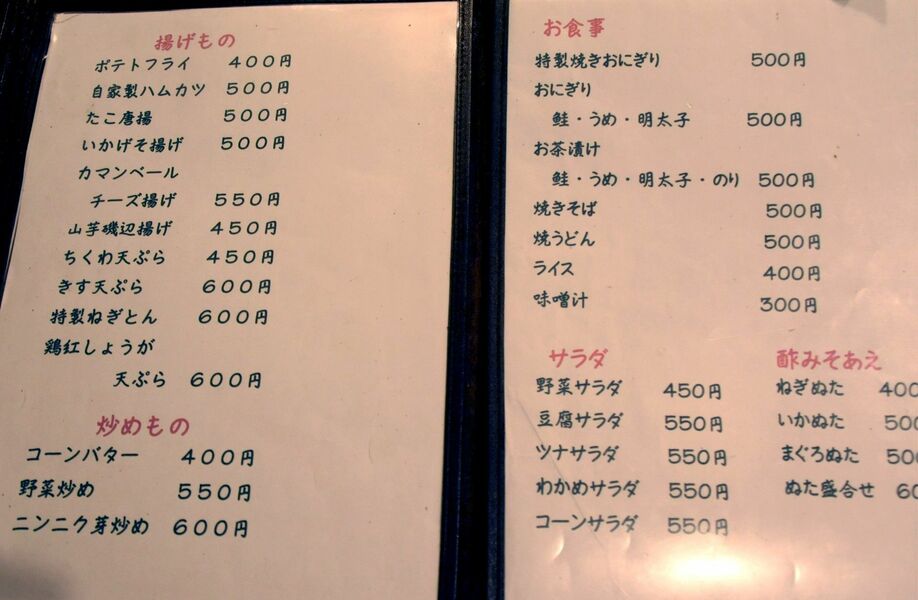 揚げもの
ポテトフライ 400円
自家製ハムカツ 500円
たこ唐揚 500円
いかげそ揚げ 500円
カマンベール
チーズ揚げ 550円
山芋磯辺揚げ 450円
ちくわ天ぷら 450円
きす天ぷら 600円
特製ねぎとん 600円
鶏紅しょうが
天ぷら 600円
炒めもの
コーンバター 400円
野菜炒め 550円
ニンニク芽炒め 600円
お食事
特製焼きおにぎり 500円
おにぎり
鮭・うめ・明太子 500円
お茶漬け
鮭・うめ・明太子・のり 500円
焼きそば 500円
焼うどん 500円
ライス 400円
味噌汁 300円
サラダ
野菜サラダ 450円
豆腐サラダ 550円
ツナサラダ 550円
わかめサラダ 550円
コーンサラダ 550円
酢みそあえ
ねぎぬた 400
いかぬた 500
まぐろぬた 500
ぬた盛合せ 60